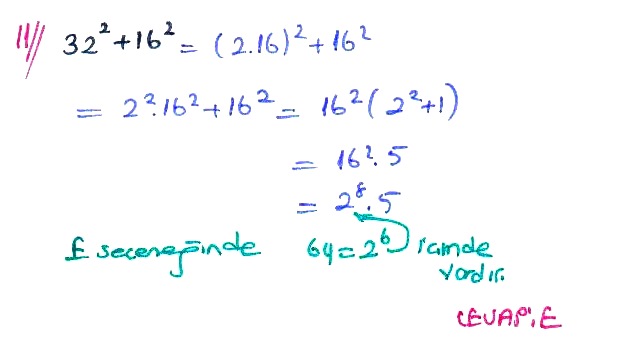 11// 32² + 16² = (2.16)² + 16²
= 2².16² + 16² = 16² (2²+1)
= 16².5
= 2⁸.5
E seceneğinde 64 = 2⁶ icinde
vardır.
CEVAP: E